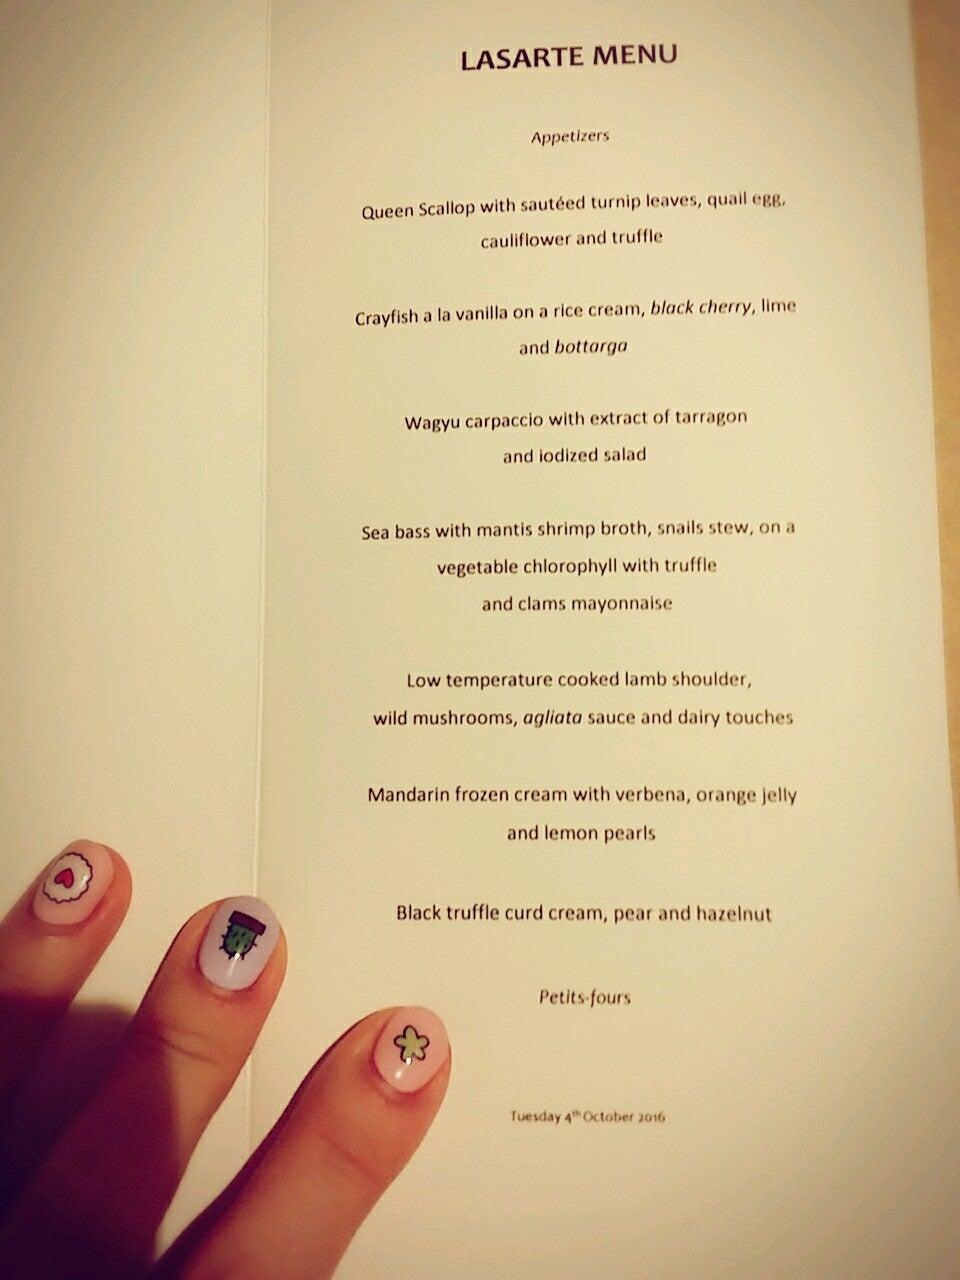 LASARTE MENU
Appetizers
Queen Scallop with sautéed turnip leaves, quail egg,
cauliflower and truffle
Crayfish a la vanilla on a rice cream, black cherry, lime
and bottarga
Wagyu carpaccio with extract of tarragon
and iodized salad
Sea bass with mantis shrimp broth, snails stew, on a
vegetable chlorophyll with truffle
and clams mayonnaise
Low temperature cooked lamb shoulder,
wild mushrooms, agliata sauce and dairy touches
Mandarin frozen cream with verbena, orange jelly
and lemon pearls
Black truffle curd cream, pear and hazelnut
Petits-fours
Tuesday 4th October 2016